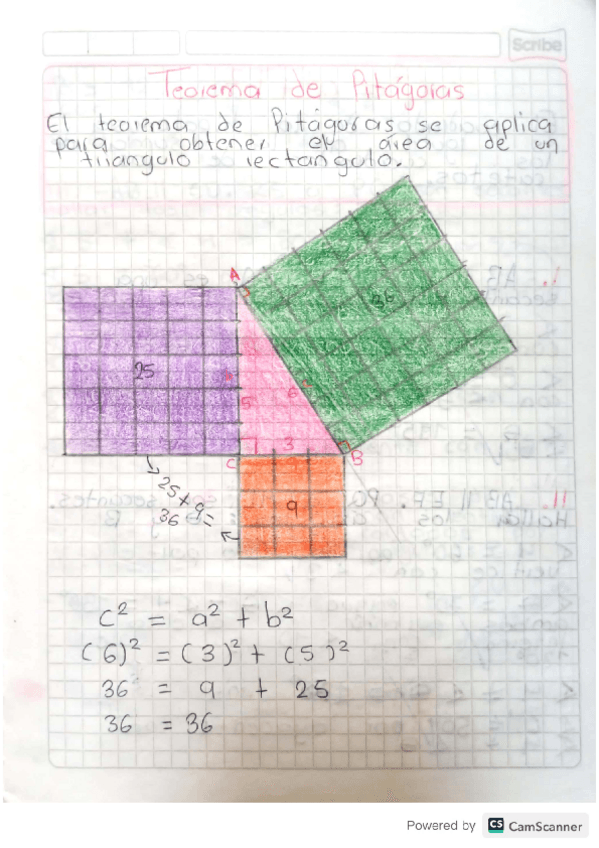 Scribe
Teorema de Pitágoras
El teorema de Pitágoras se aplica
para obtener el área de un
triangulo rectangulo.
A
36
25
b
5
6
c
3
C
B
25 + 9 =
36
9
c² = a² + b²
(6)² = (3)² + (5)²
36 = 9 + 25
36 = 36
Powered by CS CamScanner